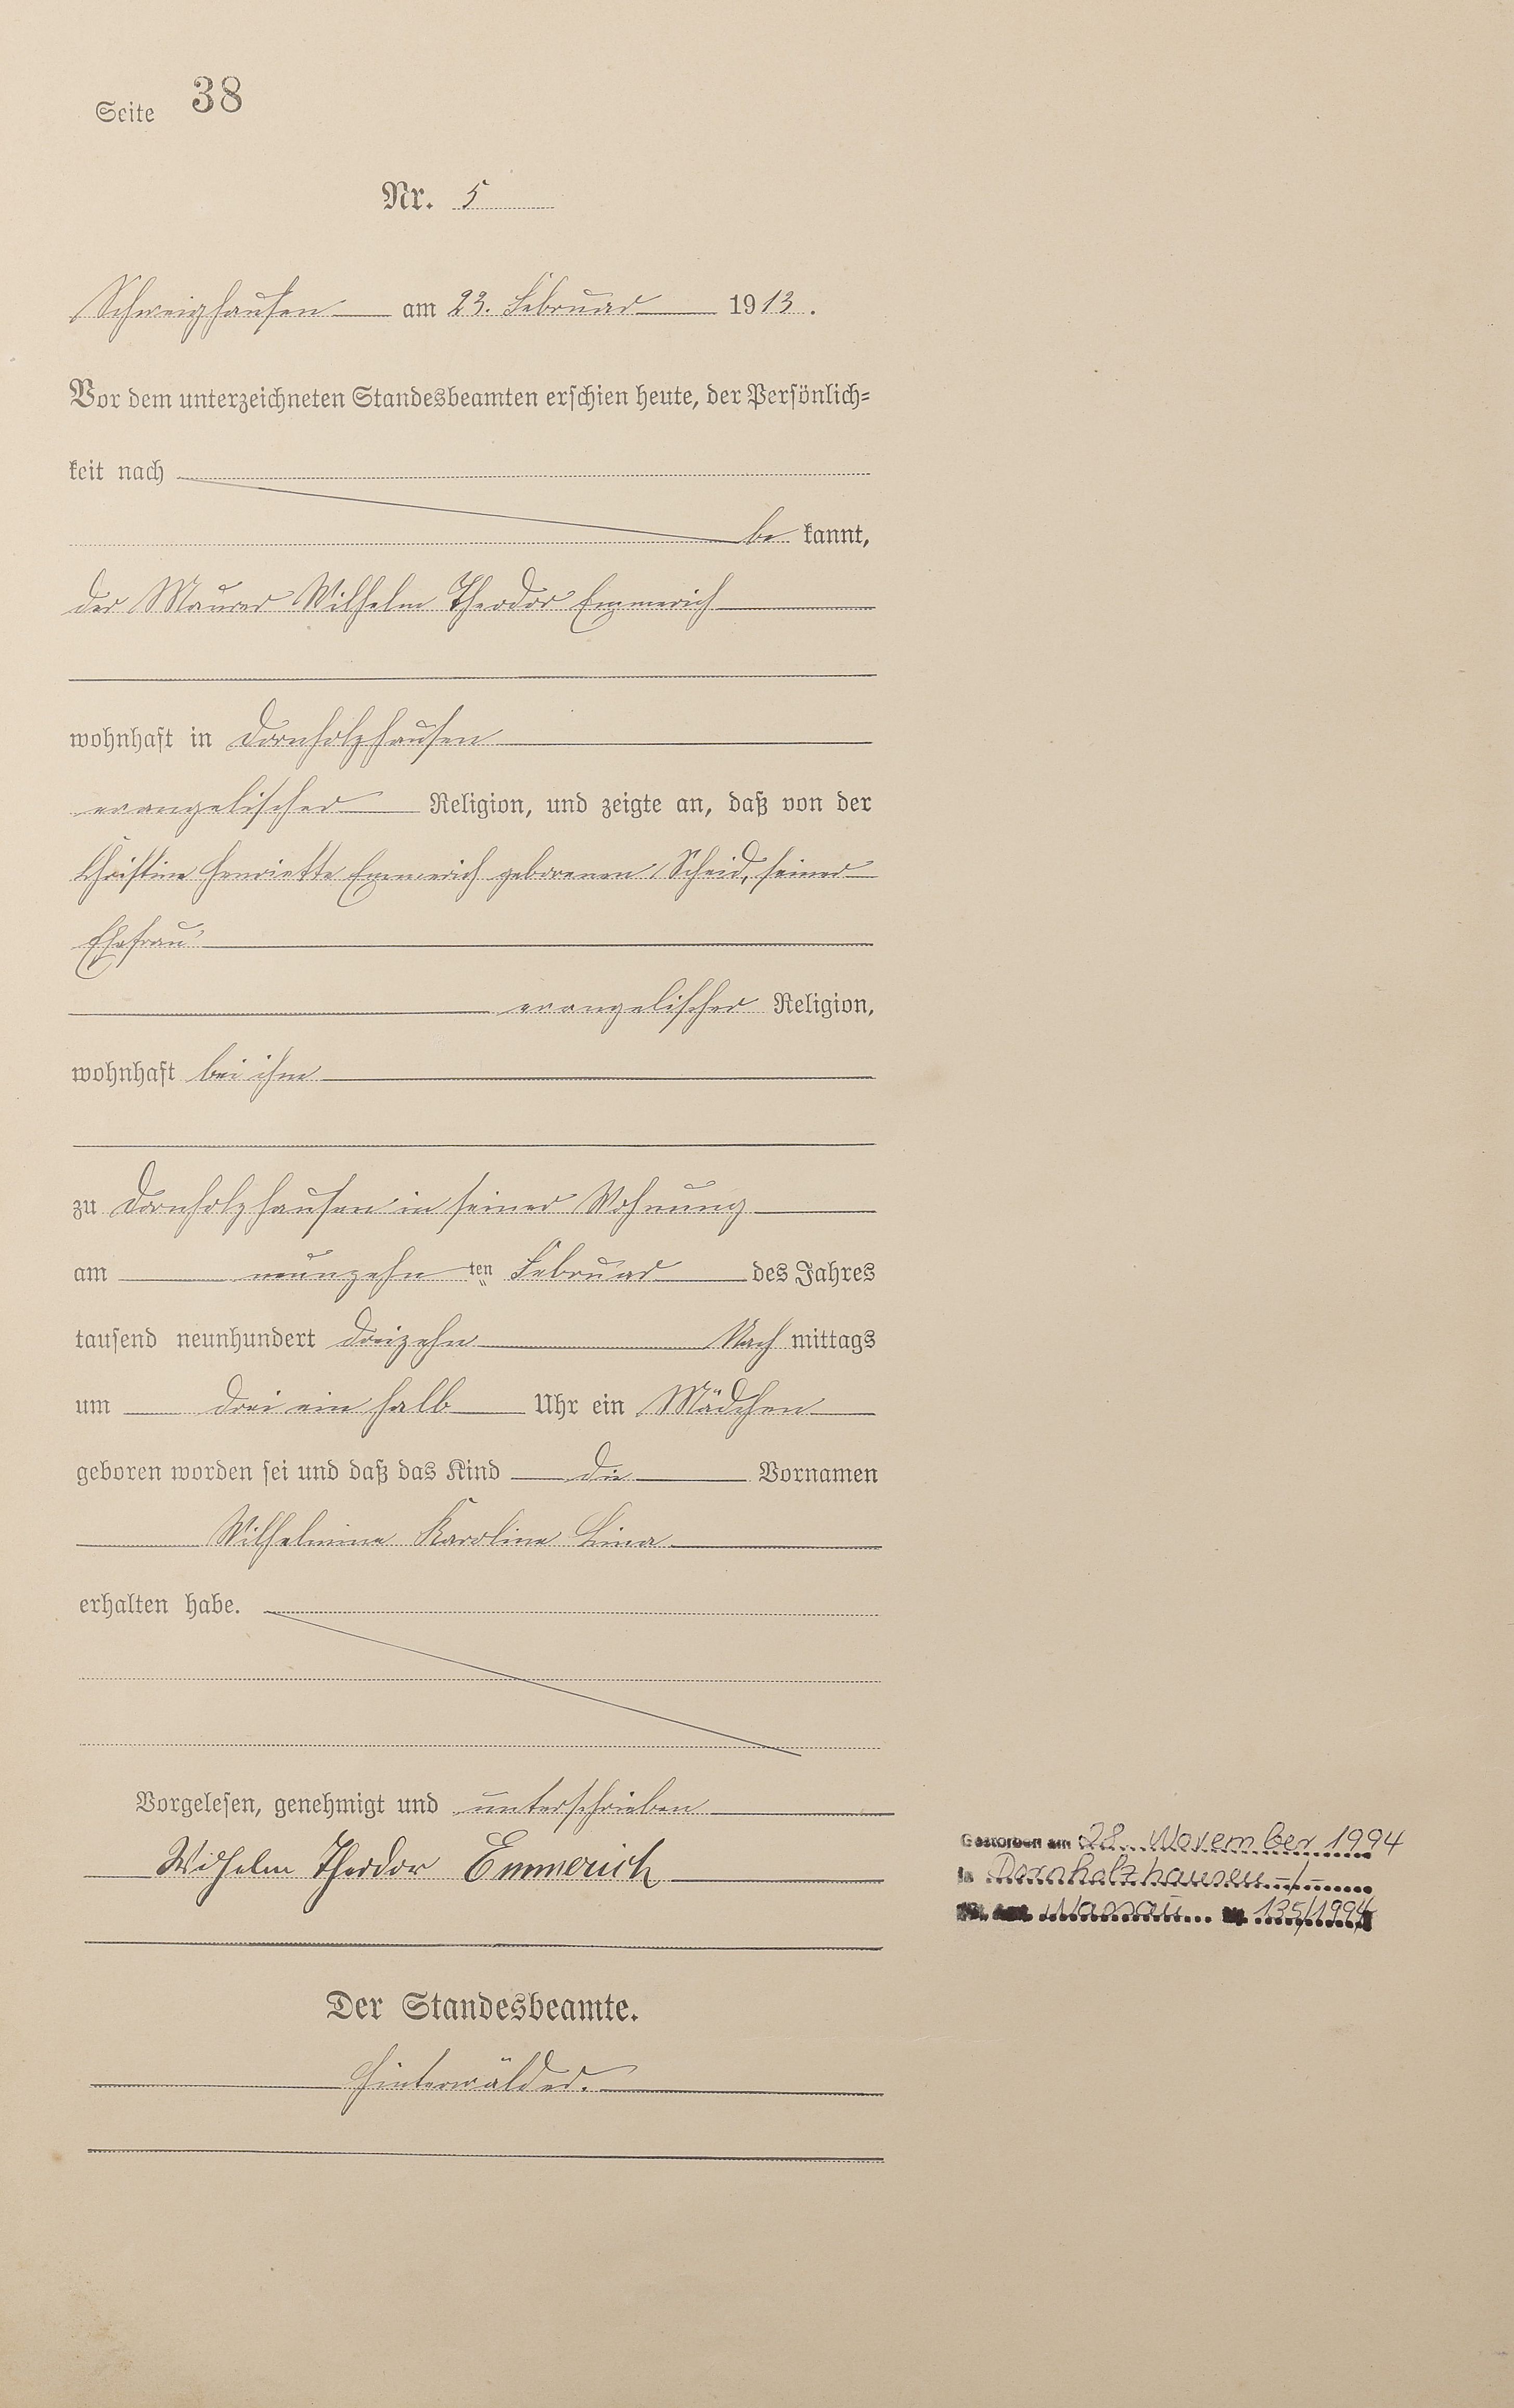 Seite 38
Nr. 5
Schweighausen am 23. Februar 1913.
Vor dem unterzeichneten Standesbeamten erschien heute, der Persönlich-
keit nach
be kannt,
der Maurer Wilhelm Theodor Emmerich
wohnhaft in Dornholzhausen
evangelischer Religion, und zeigte an, daß von der
Christine Henriette Emmerich geborenen Scheid, seiner
Ehefrau
evangelischer Religion,
wohnhaft bei ihm
zu Dornholzhausen in seiner Wohnung
am neunzehn ten Februar des Jahres
tausend neunhundert dreizehn Nach mittags
um drei ein halb Uhr ein Mädchen
geboren worden sei und daß das Kind die Vornamen
Wilhelmine Karoline Lina
erhalten habe.
Vorgelesen, genehmigt und unterschrieben
Wilhelm Theodor Emmerich
Gestorben am 28. November 1994
in Dornholzhausen -/-
Nassau 135/1994
Der Standesbeamte.
Hinterwälder.